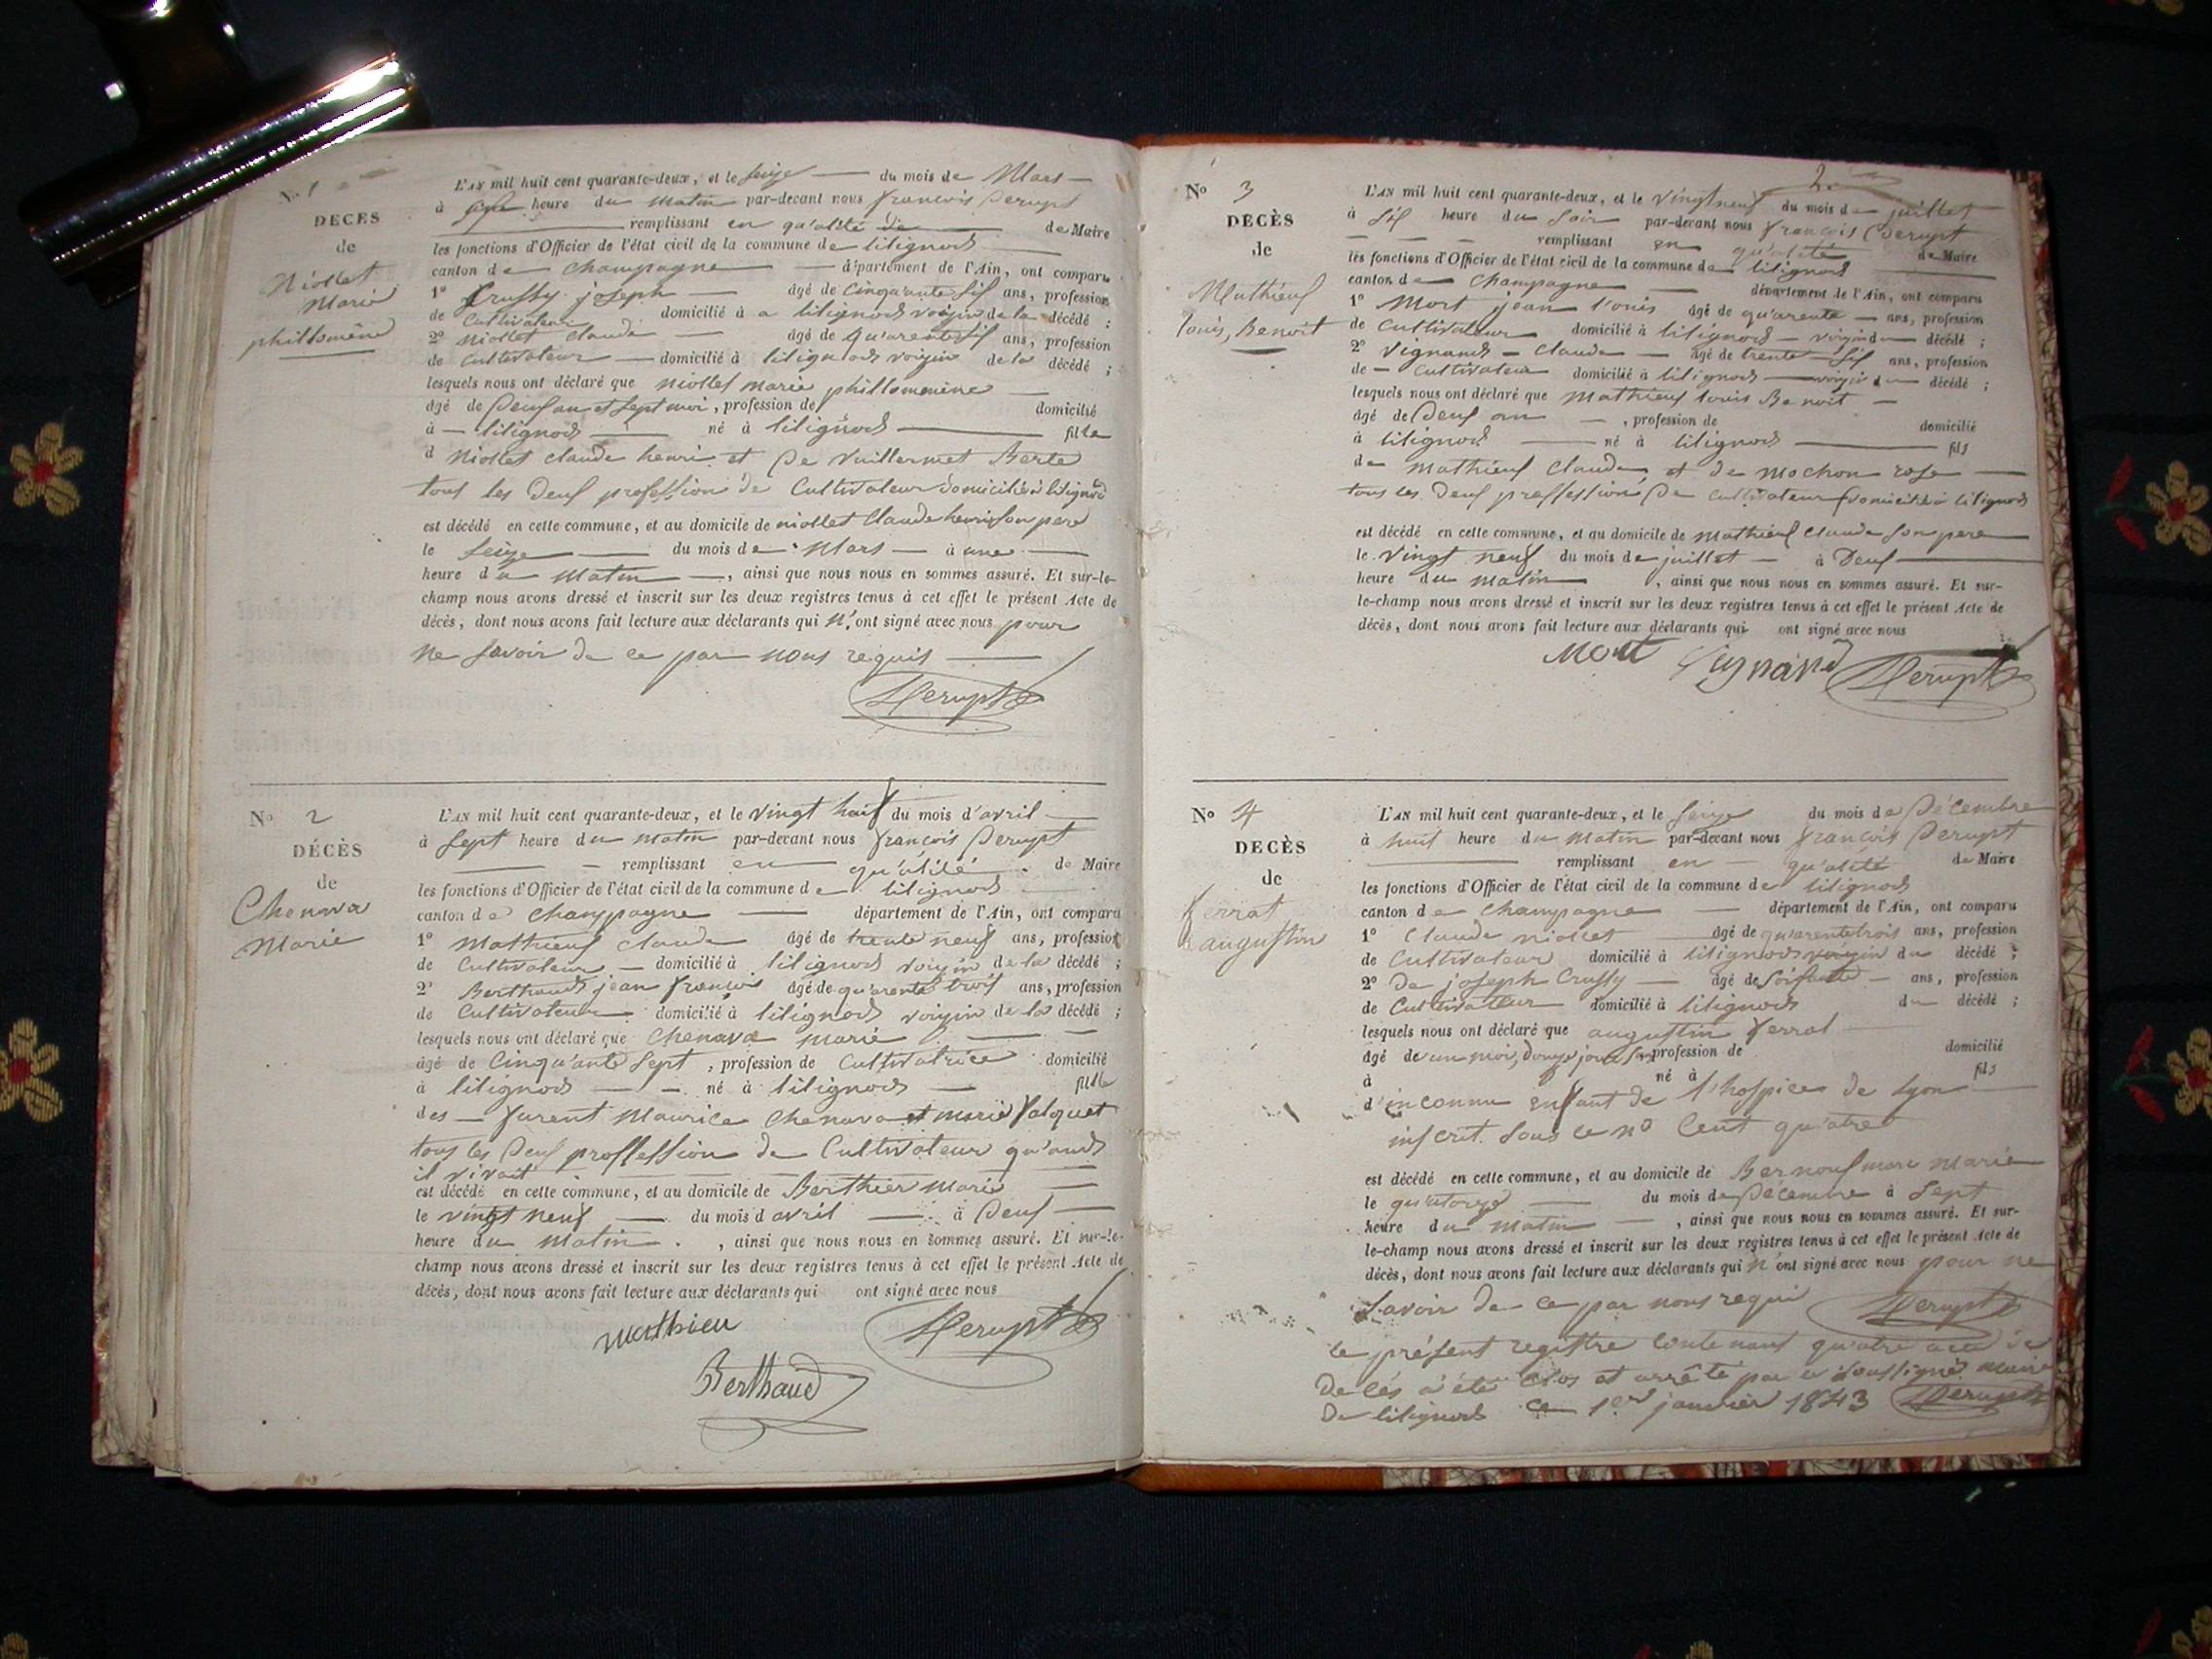 No 1
DÉCÈS
de
Niollet
Marie
phillomène
L'AN mil huit cent quarante-deux, et le seize du mois de Mars
à heure du matin par-devant nous françois Derupt
remplissant en qu'alité de de Maire
les fonctions d'Officier de l'état civil de la commune de lilignod
canton de Champagne département de l'Ain, ont comparu
1º Crussy joseph âgé de Cinqu'ante sif ans, profession
de Cultivateur domicilié à a lilignod voizin de la décédé ;
2º niollet Claude âgé de qu'arente sif ans, profession
de Cultivateur domicilié à lilignod voizin de la décédé ;
lesquels nous ont déclaré que niollet marie phillomenène
âgé de Deuf an et sept moi, profession de domicilié
à lilignod né à lilignod fille
d Niollet claude henri et De Vuillermet Berte
tous les Deuf profession de Cultivateur domicilié à lilignod
est décédé en cette commune, et au domicile de niollet Claude henri son père
le seize du mois de Mars à une
heure du Matin, ainsi que nous nous en sommes assuré. Et sur-le-
champ nous avons dressé et inscrit sur les deux registres tenus à cet effet le présent Acte de
décès, dont nous avons fait lecture aux déclarants qui n' ont signé avec nous pour
ne savoir de ce par nous requis
Derupt
No 2
DÉCÈS
de
Chenava
Marie
L'AN mil huit cent quarante-deux, et le vingt huit du mois d'avril
à sept heure du matin par-devant nous françois Derupt
remplissant en qu'alité de Maire
les fonctions d'Officier de l'état civil de la commune de lilignod
canton de Champagne département de l'Ain, ont comparu
1º Mathieuf Claude âgé de trente neuf ans, profession
de Cultivateur domicilié à lilignod voizin de la décédé ;
2º Berthaud jean françois âgé de qu'arente trois ans, profession
de Cultivateur domicilié à lilignod voizin de la décédé ;
lesquels nous ont déclaré que Chenava marie
âgé de Cinqu'ante sept, profession de Cultivatrice domicilié
à lilignod né à lilignod fille
des furent Maurice Chenava et marie falquet
tous les Deuf proffession de Cultivateur qu'and
il vivait
est décédé en cette commune, et au domicile de Berthier Marie
le vingt neuf du mois d avril à Deuf
heure du matin, ainsi que nous nous en sommes assuré. Et sur-le-
champ nous avons dressé et inscrit sur les deux registres tenus à cet effet le présent Acte de
décès, dont nous avons fait lecture aux déclarants qui ont signé avec nous
Mathieu
Derupt
Berthaud
2
No 3
DÉCÈS
de
Mathieuf
louis, Benoit
L'AN mil huit cent quarante-deux, et le vingt neuf du mois de juillet
à sif heure du soir par-devant nous françois Derupt
remplissant en qu'alité de Maire
les fonctions d'Officier de l'état civil de la commune de lilignod
canton de Champagne département de l'Ain, ont comparu
1º Mort jean louis âgé de qu'arente ans, profession
de Cultivateur domicilié à lilignod voizin du décédé ;
2º Vignand Claude âgé de trente sif ans, profession
de Cultivateur domicilié à lilignod voizin du décédé ;
lesquels nous ont déclaré que Mathieuf louis Benoit
âgé de Deuf an, profession de domicilié
à lilignod né à lilignod fils
de mathieuf Claude et de mochon rose
tous les Deuf proffession De Cultivateur domicilié à lilignod
est décédé en cette commune, et au domicile de mathieuf Claude son pere
le vingt neuf du mois de juillet à Deuf
heure du matin, ainsi que nous nous en sommes assuré. Et sur-
le-champ nous avons dressé et inscrit sur les deux registres tenus à cet effet le présent Acte de
décès, dont nous avons fait lecture aux déclarants qui ont signé avec nous
Mort Vignand Derupt
No 4
DECÈS
de
ferrat
augustin
L'AN mil huit cent quarante-deux, et le seize du mois de Décembre
à huit heure du matin par-devant nous françois Derupt
remplissant en qu'alité de Maire
les fonctions d'Officier de l'état civil de la commune de lilignod
canton de Champagne département de l'Ain, ont comparu
1º Claude niollet âgé de qu'arente trois ans, profession
de Cultivateur domicilié à lilignod voizin du décédé ;
2º De joseph Crussy âgé de soifante ans, profession
de Cultivateur domicilié à lilignod du décédé ;
lesquels nous ont déclaré que augustin ferrat
âgé de un moi, douze jour profession de domicilié
à né à fils
d'inconnu enfant de l'hospice de lyon
inscrit sous le no Cent qu'atre
est décédé en cette commune, et au domicile de Marie
le qu'atorze du mois de Décembre à sept
heure du matin, ainsi que nous nous en sommes assuré. Et sur-
le-champ nous avons dressé et inscrit sur les deux registres tenus à cet effet le présent Acte de
décès, dont nous avons fait lecture aux déclarants qui n' ont signé avec nous pour ne
savoir de ce par nous requi Derupt
le présent registre contenant qu'atre acte de
Décés a été Clos et arrêté par le soussigné maire
De lilignod ce 1er janvier 1843 Derupt